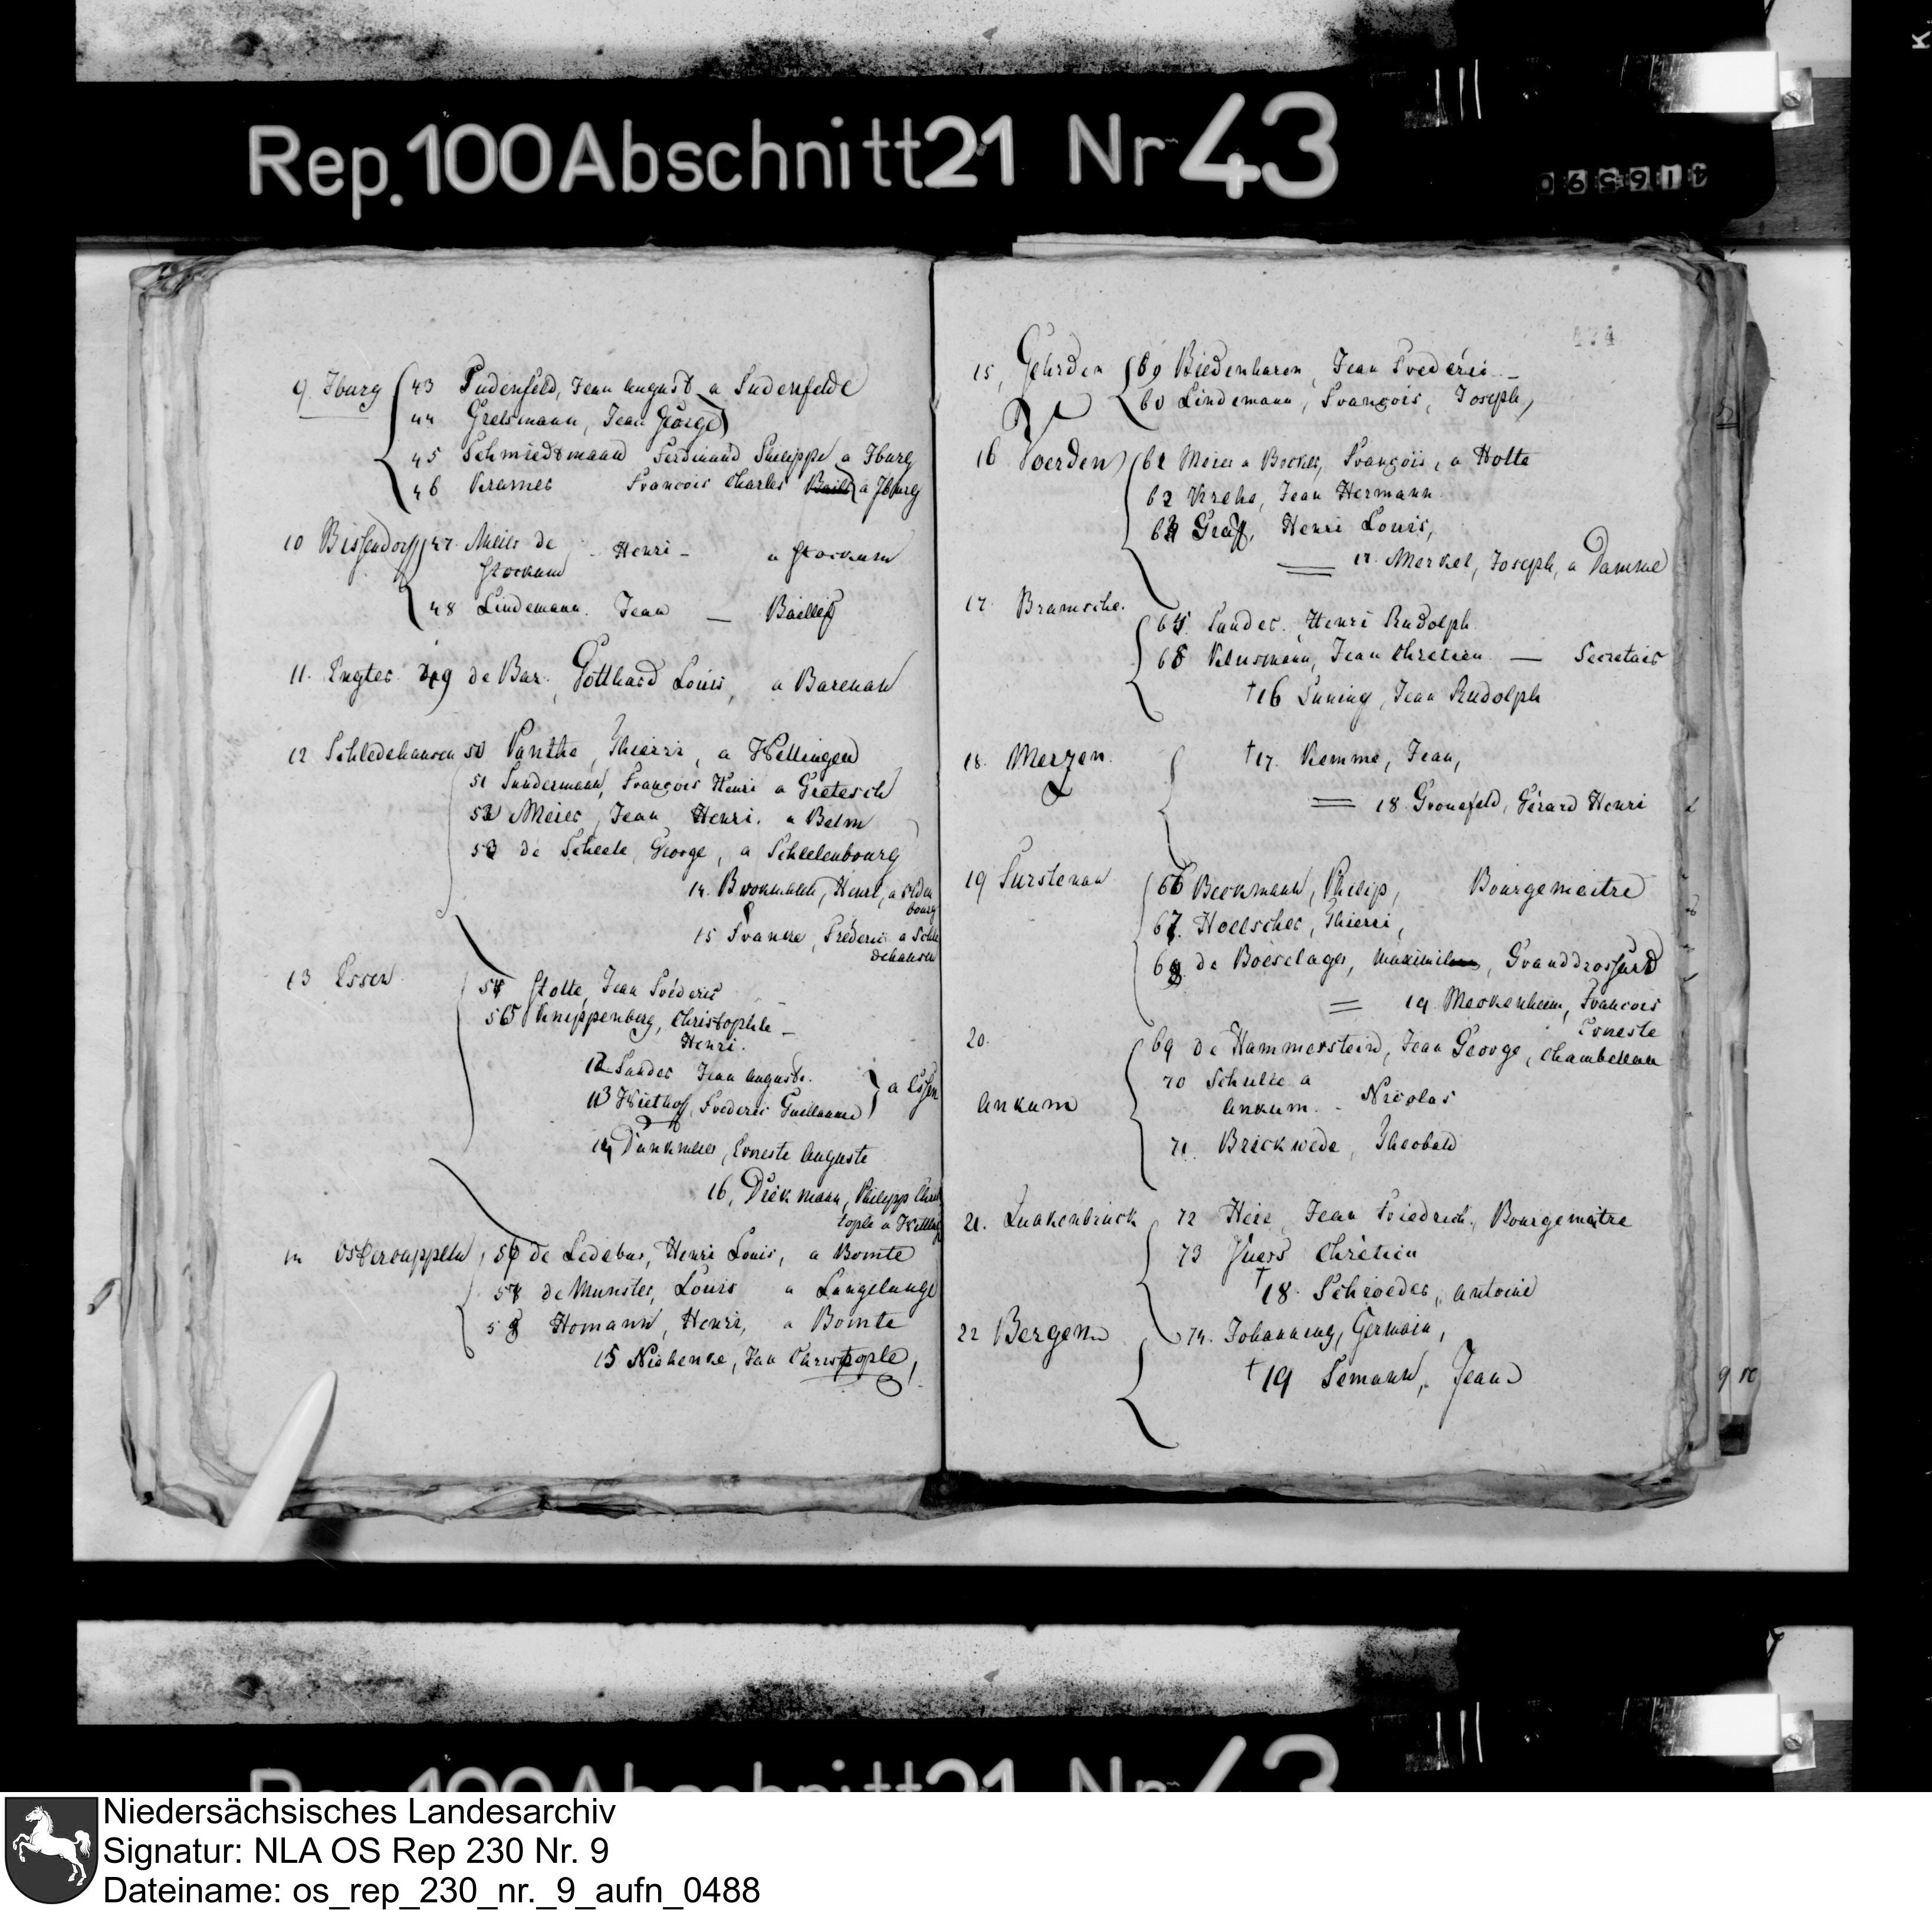 Rep. 100 Abschnitt 21 Nr 43
9 Iburg 43 Sudenfeld, Jean August a Sudenfelde
44 Gretsmann, Jean George
45 Schmiedtmann Ferdinand Philippe a Iburg
46 Kramer Francois Charles Baillif a Iburg
10 Bissendorff 47. Meier de Stockum - Henri - a Stockum
48 Lindemann. Jean — Baillif
11. Engter 49 de Bar, Gotthard Louis, a Barenau
12 Schledehausen 50 Panthe, Thierri, a Wellingen
51 Sundermann, François Henri a Gretesch
52 Meier, Jean Henri. a Belm
53 de Scheele, George, a Scheelenbourg
14. Brookmann, Henri, a
bourg
15 Francke, Fréderic a Schle
dehausen
13 Essen
54 Stolte, Jean Fréderic
55 Knippenberg, Christophle —
Henri.
12 Sander Jean Auguste.
13 Wiethoff, Frederic Guillaume } a Essen
14 Dunkmeier, Erneste Auguste
16, Diekmann, Philipp Chris
tople a
Ostercappeln 56 de Ledebur, Henri Louis, a Bomte
57 de Munster, Louis a Langelage
58 Homann, Henri, a Bomte
15 Niehenke, Jan Christople,
174
15, Gehrden 59 Biedenharen, Jean Frederic —
60 Lindemann, François, Joseph,
16 Voerden 61 Meier a Bockel, François, a Holte
62 Krehe, Jean Hermann
63 Graff, Henri Louis,
17. Merkel, Joseph, a Damme
17. Bramsche.
64 Sander. Henri Rudolph
65 Klusmann, Jean Chretien — Secretair
†16 Suning, Jean Rudolph
18. Merzen.
†17. Remme, Jean,
18 Gronefeld, Gérard Henri
19 Furstenau 66 Beckmann, Philip, Bourgemaitre
67. Hoelscher, Thierri,
68 de Boeselager, Maximilien, Granddrossard
19 Meckenheim, Francois
Erneste
20.
69 de Hammerstein, Jean George, Chambellan
Ankum
70 Schulte a
Ankum. - Nicolas
71. Brickwede, Theobald
21. Quakenbruck 72 Heie Jean Friedrich, Bourgemaitre
73 Chrétien
†18. Schroeder, Antoine
22 Bergen 74. Johanning, Germain,
†19 Semann, Jean
9 10
Niedersächsisches Landesarchiv
Signatur: NLA OS Rep 230 Nr. 9
Dateiname: os_rep_230_nr._9_aufn_0488